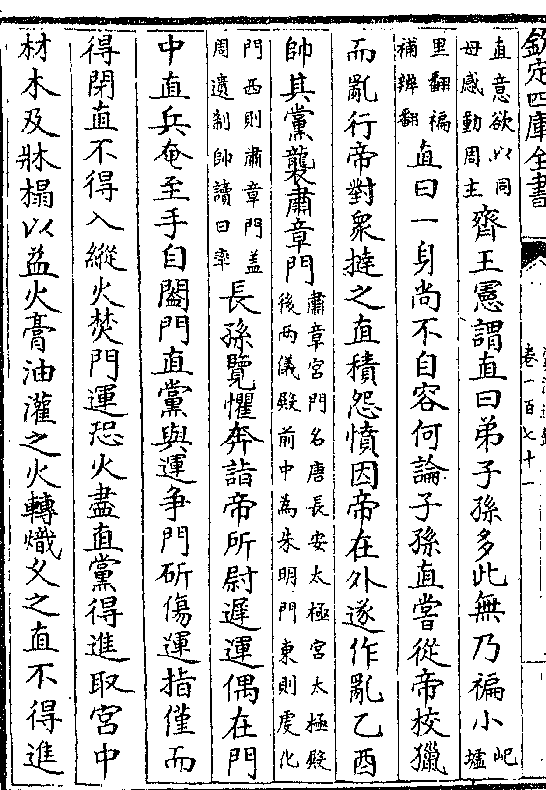 欽定四庫全書
卷一百七十一
直意欲以同
母感動周主
齊王憲謂直曰弟子孫多此無乃褊小
屺
墟
里翻褊
補辨翻
直曰一身尚不自容何論子孫直嘗從帝校獵
而亂行帝對衆撻之直積怨憤因帝在外遂作亂乙酉
帥其黨襲肅章門
肅章宮門名唐長安太極宮太極殿
後兩儀殿前中為朱明門東則䖍化
門西則肅章門蓋
周遺制帥讀曰率
長孫覽懼奔詣帝所尉遲運偶在門
中直兵奄至手自闔門直黨與運爭門斫傷運指僅而
得閉直不得入縱火焚門運恐火盡直黨得進取宮中
材木及牀榻以益火膏油灌之火轉熾久之直不得進